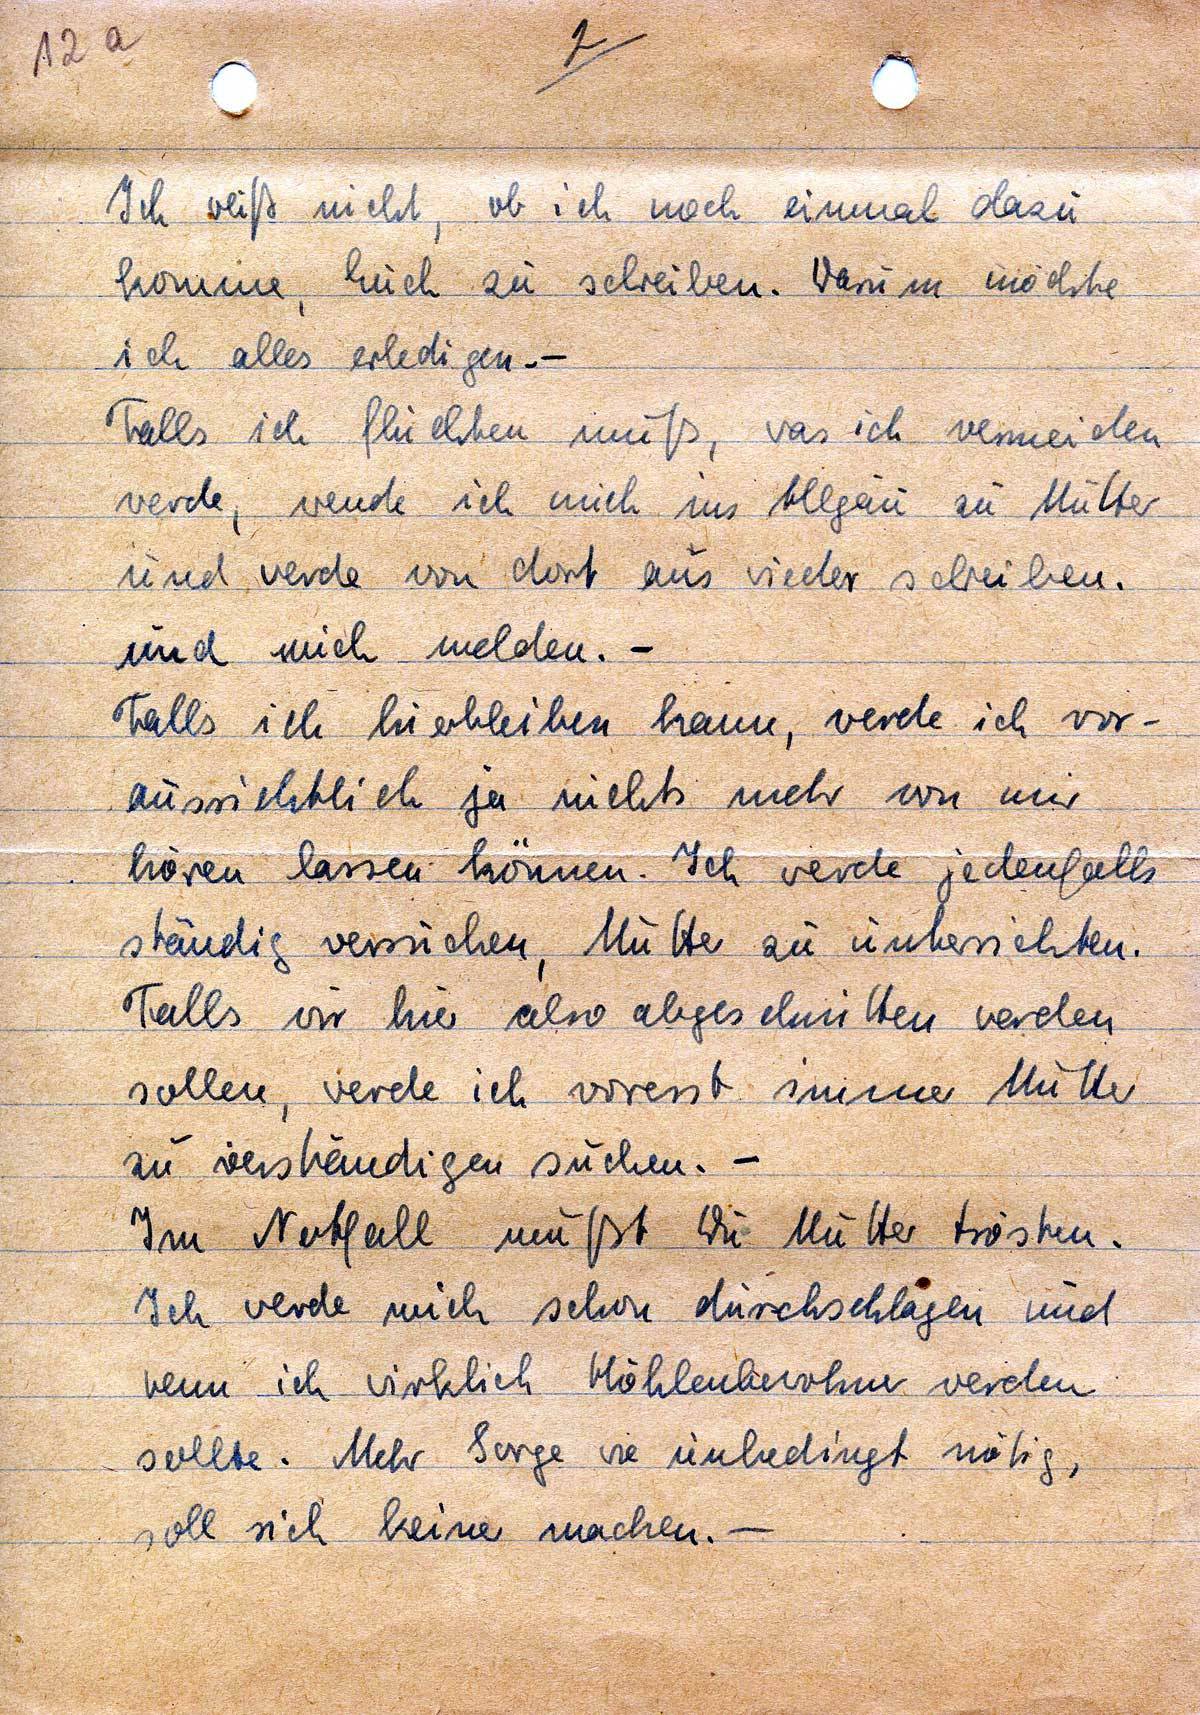 12 a
2
Ich weiß nicht, ob ich noch einmal dazu
komme, Euch zu schreiben. Darum möchte
ich alles erledigen.-
Falls ich flüchten muß, was ich vermeiden
werde, wende ich mich ins Allgäu zu Mutter
und werde von dort aus wieder schreiben.
und mich melden. -
Falls ich hierbleiben kann, werde ich vor-
aussichtlich ja nichts mehr von mir
hören lassen können. Ich werde jedenfalls
ständig versuchen, Mutter zu unterrichten.
Falls wir hier also abgeschnitten werden
sollen, werde ich vorerst immer Mutter
zu verständigen suchen. -
Im Notfall mußt Du Mutter trösten.
Ich werde mich schon durchschlagen und
wenn ich wirklich Höhlenbewohner werden
sollte. Mehr Sorge wie unbedingt nötig,
soll sich keiner machen. -